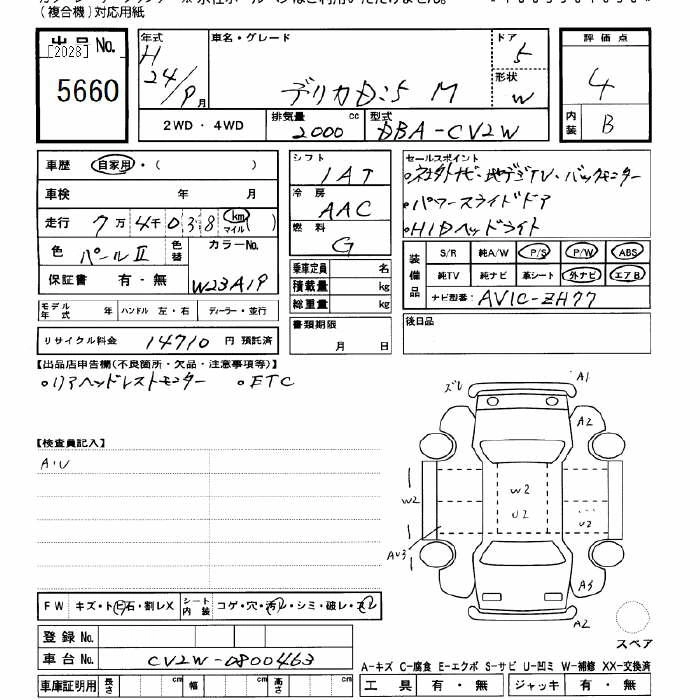 (複合機)対応用紙
出品No. [2028] 5660
年式 H 24/9 月
車名・グレード デリカD:5 M
ドア 5
形状 W
評価点 4
内装 B
2WD・4WD
排気量 2000 cc
型式 DBA-CV2W
車歴 自家用・( )
車検 年 月
走行 7万4千038 km マイル( )
色 パールII 色替 カラーNo. W23A19
保証書 有・無
モデル年式 年 ハンドル 左・右 ディーラー・並行
リサイクル料金 14710 円 預託済
シフト IAT
冷房 AAC
燃料 G
乗車定員 名
積載量 kg
総重量 kg
書類期限 月 日
セールスポイント
・社外ナビ・地デジTV・バックモニター
・パワースライドドア
・HIDヘッドライト
装備品 S/R 純A/W P/S P/W ABS
純TV 純ナビ 革シート 外ナビ エアB
ナビ型番: AVIC-ZH77
後日品
【出品店申告欄(不良箇所・欠品・注意事項等)】
・リアヘッドレストモニター ・ETC
【検査員記入】
A・U
ズレ A1
A2
W2
U2
W2
U2
AU3
A3
A2
スペア
FW キズ・トビ石・割レX シート内装 コゲ・穴・汚レ・シミ・破レ・スレ
登録No.
車台No. CV2W-0800463
車庫証明用 長さ cm 幅 cm 高さ cm
A-キズ C-腐食 E-エクボ S-サビ U-凹ミ W-補修 XX-交換済
工具 有・無 ジャッキ 有・無